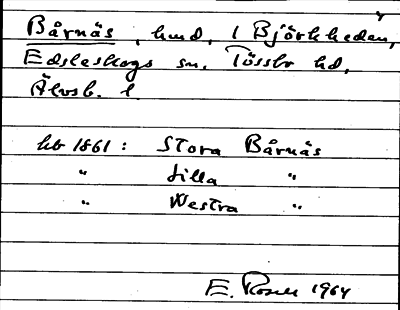 Bårnäs, hmd, i Björkhedan,
Edsleskogs sn. Tössbo hd,
Älvsb. l.
hb 1861: Stora Bårnäs
" Lilla "
" Westra "
E. Rosell 1964